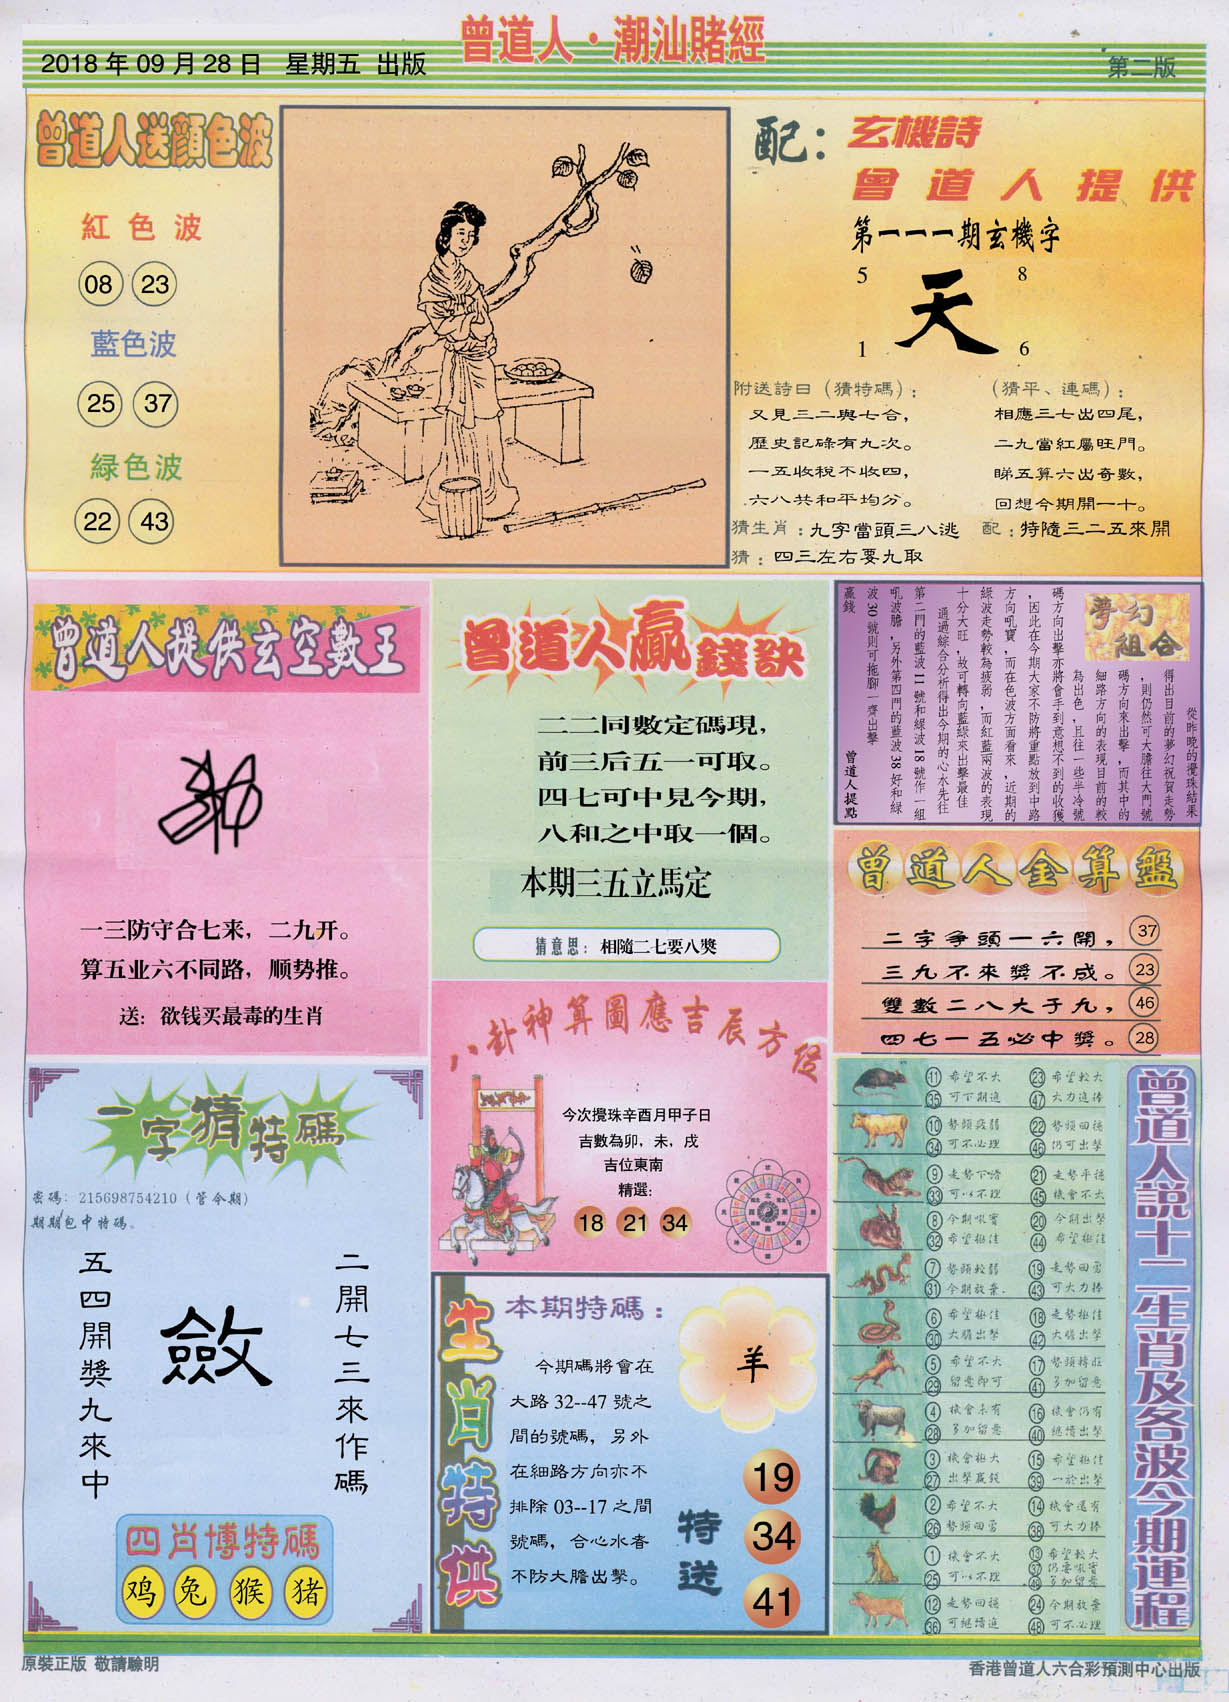 曾道人·潮汕賭經
2018 年 09 月 28 日 星期五 出版
第二版
曾道人送顏色波
紅色波
08 23
藍色波
25 37
緑色波
22 43
配：玄機詩
曾道人提供
第一一一期玄機字
5 8
天
1 6
附送詩曰（猜特碼）：
又見三二與七合，
歷史記碌有九次。
一五收稅不收四，
六八共和平均分。
（猜平、連碼）：
相應三七出四尾，
二九當紅屬旺門。
睇五算六出奇數，
回想今期開一十。
猜生肖：九字當頭三八逃
配：特隨三二五來開
猜：四三左右要九取
曾道人提供玄空數王
一三防守合七来，二九开。
算五业六不同路，顺势推。
送：欲钱买最毒的生肖
曾道人贏錢訣
二二同數定碼現，
前三后五一可取。
四七可中見今期，
八和之中取一個。
本期三五立馬定
猜意思：相隨二七要八獎
夢幻
組合
從昨晚的攪珠結果
得出目前的夢幻祝賀走勢
，則仍然可大膽往大門號
碼方向來出擊，而其中的
細路方向的表現目前的較
為出色，且往一些半冷號
碼方向出擊亦將會手到意想不到的收獲
，因此在今期大家不防將重點放到中路
方向吼寶，而在色波方面看來，近期的
綠波走勢較為疲弱，而紅藍兩波的表現
十分大旺，故可轉向藍綠來出擊最佳
通過綜合分析得出今期的心水先往
第二門的藍波 11 號和綠波 18 號作一組
吼波膽，另外第四門的藍波 38 好和綠
波 30 號則可拖腳一齊出擊
贏錢
曾道人提點
曾道人金算盤
二字爭頭一六開，37
三九不來獎不成。23
雙數二八大于九，46
四七一五必中獎。28
八卦神算圖應吉辰方位
今次攪珠辛酉月甲子日
吉數為卯，未，戌
吉位東南
精選：
18 21 34
一字猜特碼
密碼：215698754210（管今期）
期期包中特碼。
二開七三來作碼
斂
五四開獎九來中
四肖博特碼
鸡 兔 猴 猪
生肖特供
本期特碼：
今期碼將會在
大路 32--47 號之
間的號碼，另外
在細路方向亦不
排除 03--17 之間
號碼，合心水者
不防大膽出擊。
羊
特送
19
34
41
曾道人說十二生肖及各波今期運程
11 希望不大 23 希望較大
35 可下期追 47 大力追捧
10 勢頭疲弱 22 勢頭回穩
34 可不必理 46 仍可出擊
9 走勢下滑 21 走勢平穩
33 可以不理 45 機會不大
8 今期吼實 20 今期出擊
32 希望極佳 44 希望極佳
7 勢頭較弱 19 走勢回勇
31 今期放棄 43 可大力捧
6 希望極佳 18 走勢極佳
30 大膽出擊 42 大膽出擊
5 希望不大 17 勢頭轉旺
29 留意即可 41 多加留意
4 機會未有 16 機會仍有
28 多加留意 40 繼續出擊
3 機會極大 15 希望極佳
27 出擊贏錢 39 一於出擊
2 希望不大 14 機會還有
26 勢頭回勇 38 可大力捧
1 機會不大 13 希望較大
25 可以不理 37 仍要吼實
49 多加留意
12 走勢回穩 24 今期放棄
36 可繼續追 48 可不必理
原裝正版 敬請驗明
香港曾道人六合彩預測中心出版